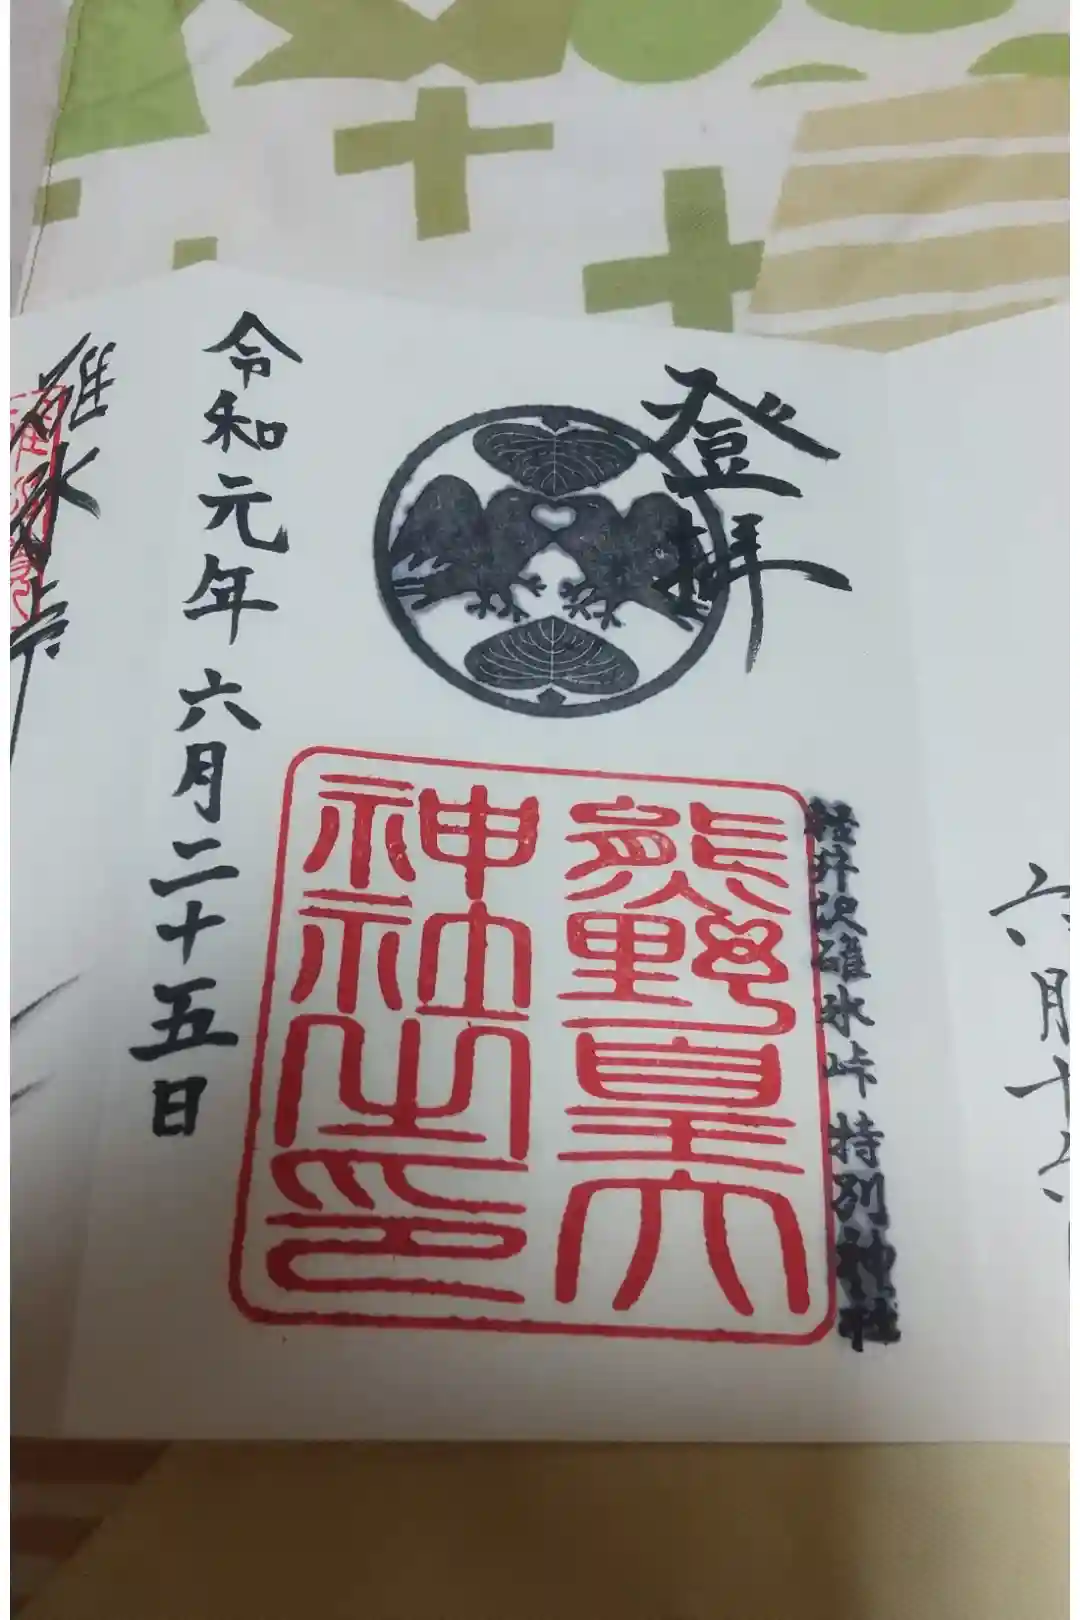 六月十
登拝
軽井沢碓氷峠特別神社
熊野皇大
神社之印
令和元年六月二十五日
碓氷峠